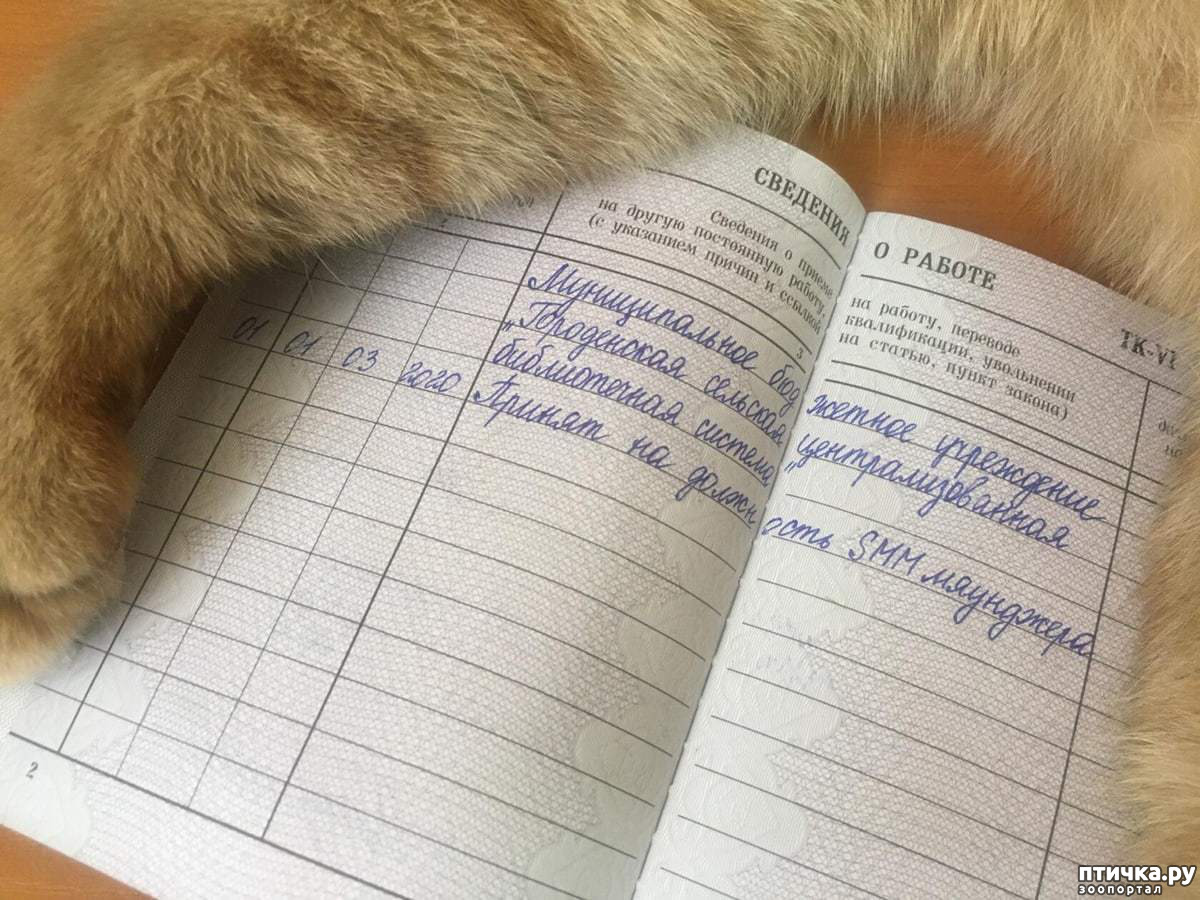 СВЕДЕНИЯ О РАБОТЕ
ТК-VI
Сведения о приеме на работу, переводе
на другую постоянную работу, квалификации, увольнении
(с указанием причин и ссылкой на статью, пункт закона)
3
Муниципальное бюджетное учреждение
„Городенская сельская централизованная
библиотечная система"
01 01 03 2020 Принят на должность SMM мяунджера
2
птичка.ру
зоопортал